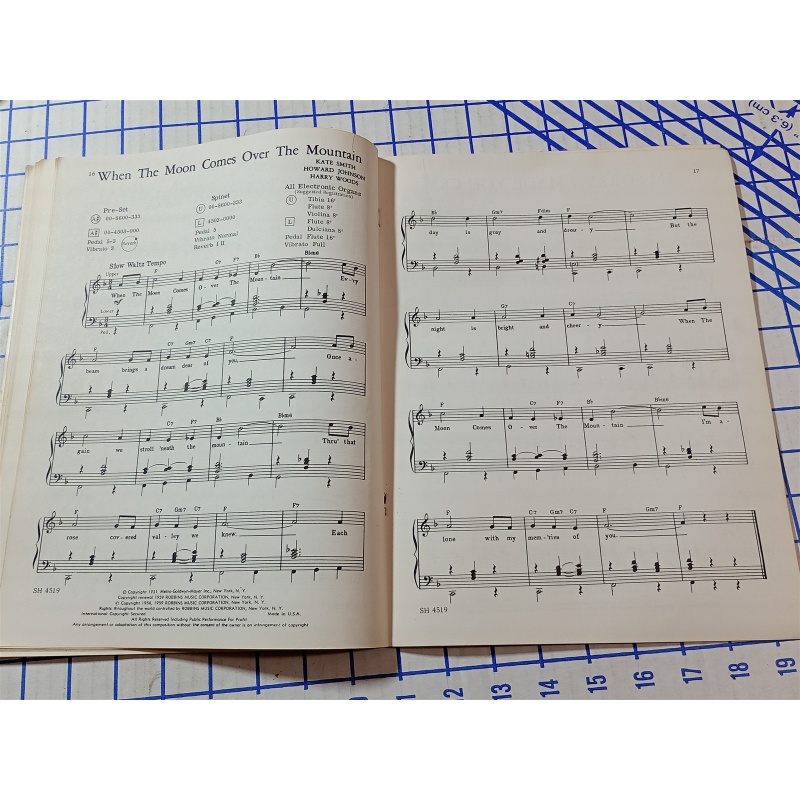 16 When The Moon Comes Over The Mountain
KATE SMITH
HOWARD JOHNSON
HARRY WOODS
Pre-Set
A♯ 00-8600-333
A♯ 00-4503-000
Pedal 5-3
Vibrato 2
Spinet
U 00-8600-333
L 4502-0000
Pedal 5
Vibrato Normal
Reverb I II
All Electronic Organs
(Suggested Registration)
U Tibia 16'
Flute 8'
Violina 8'
L Flute 8'
Dulciana 8'
Pedal Flute 16'
Vibrato Full
Slow Waltz Tempo
Upper F C7 F7 B♭ B♭m6
mf
When The Moon Comes O - ver The Moun - tain Ev - 'ry
Lower
Ped.
F C7 Gm7 C7 F
beam brings a dream dear of you. Once a -
F C7 F7 B♭ B♭m6
gain we stroll 'neath the moun - tain Thru' that
F C7 Gm7 C7 F F7
rose cov - ered val - ley we knew. Each
SH 4519
© Copyright 1931 Metro-Goldwyn-Mayer Inc., New York, N. Y.
Copyright renewal 1959 ROBBINS MUSIC CORPORATION, New York, N. Y.
© Copyright 1956, 1959 ROBBINS MUSIC CORPORATION, New York, N. Y.
Rights throughout the world controlled by ROBBINS MUSIC CORPORATION, New York, N. Y.
International Copyright Secured Made in U.S.A.
All Rights Reserved Including Public Performance For Profit
Any arrangement or adaptation of this composition without the consent of the owner is an infringement of copyright
17
B♭ Gm7 F dim F
day is gray and drear - y But the
G7 C7
night is bright and cheer - y When The
F C7 F7 B♭ B♭m6
Moon Comes O - ver The Moun - tain I'm a -
F C7 Gm7 C7 F Gm7 F
lone with my mem - 'ries of you.
SH 4519
12 13 14 15 16 17 18 19